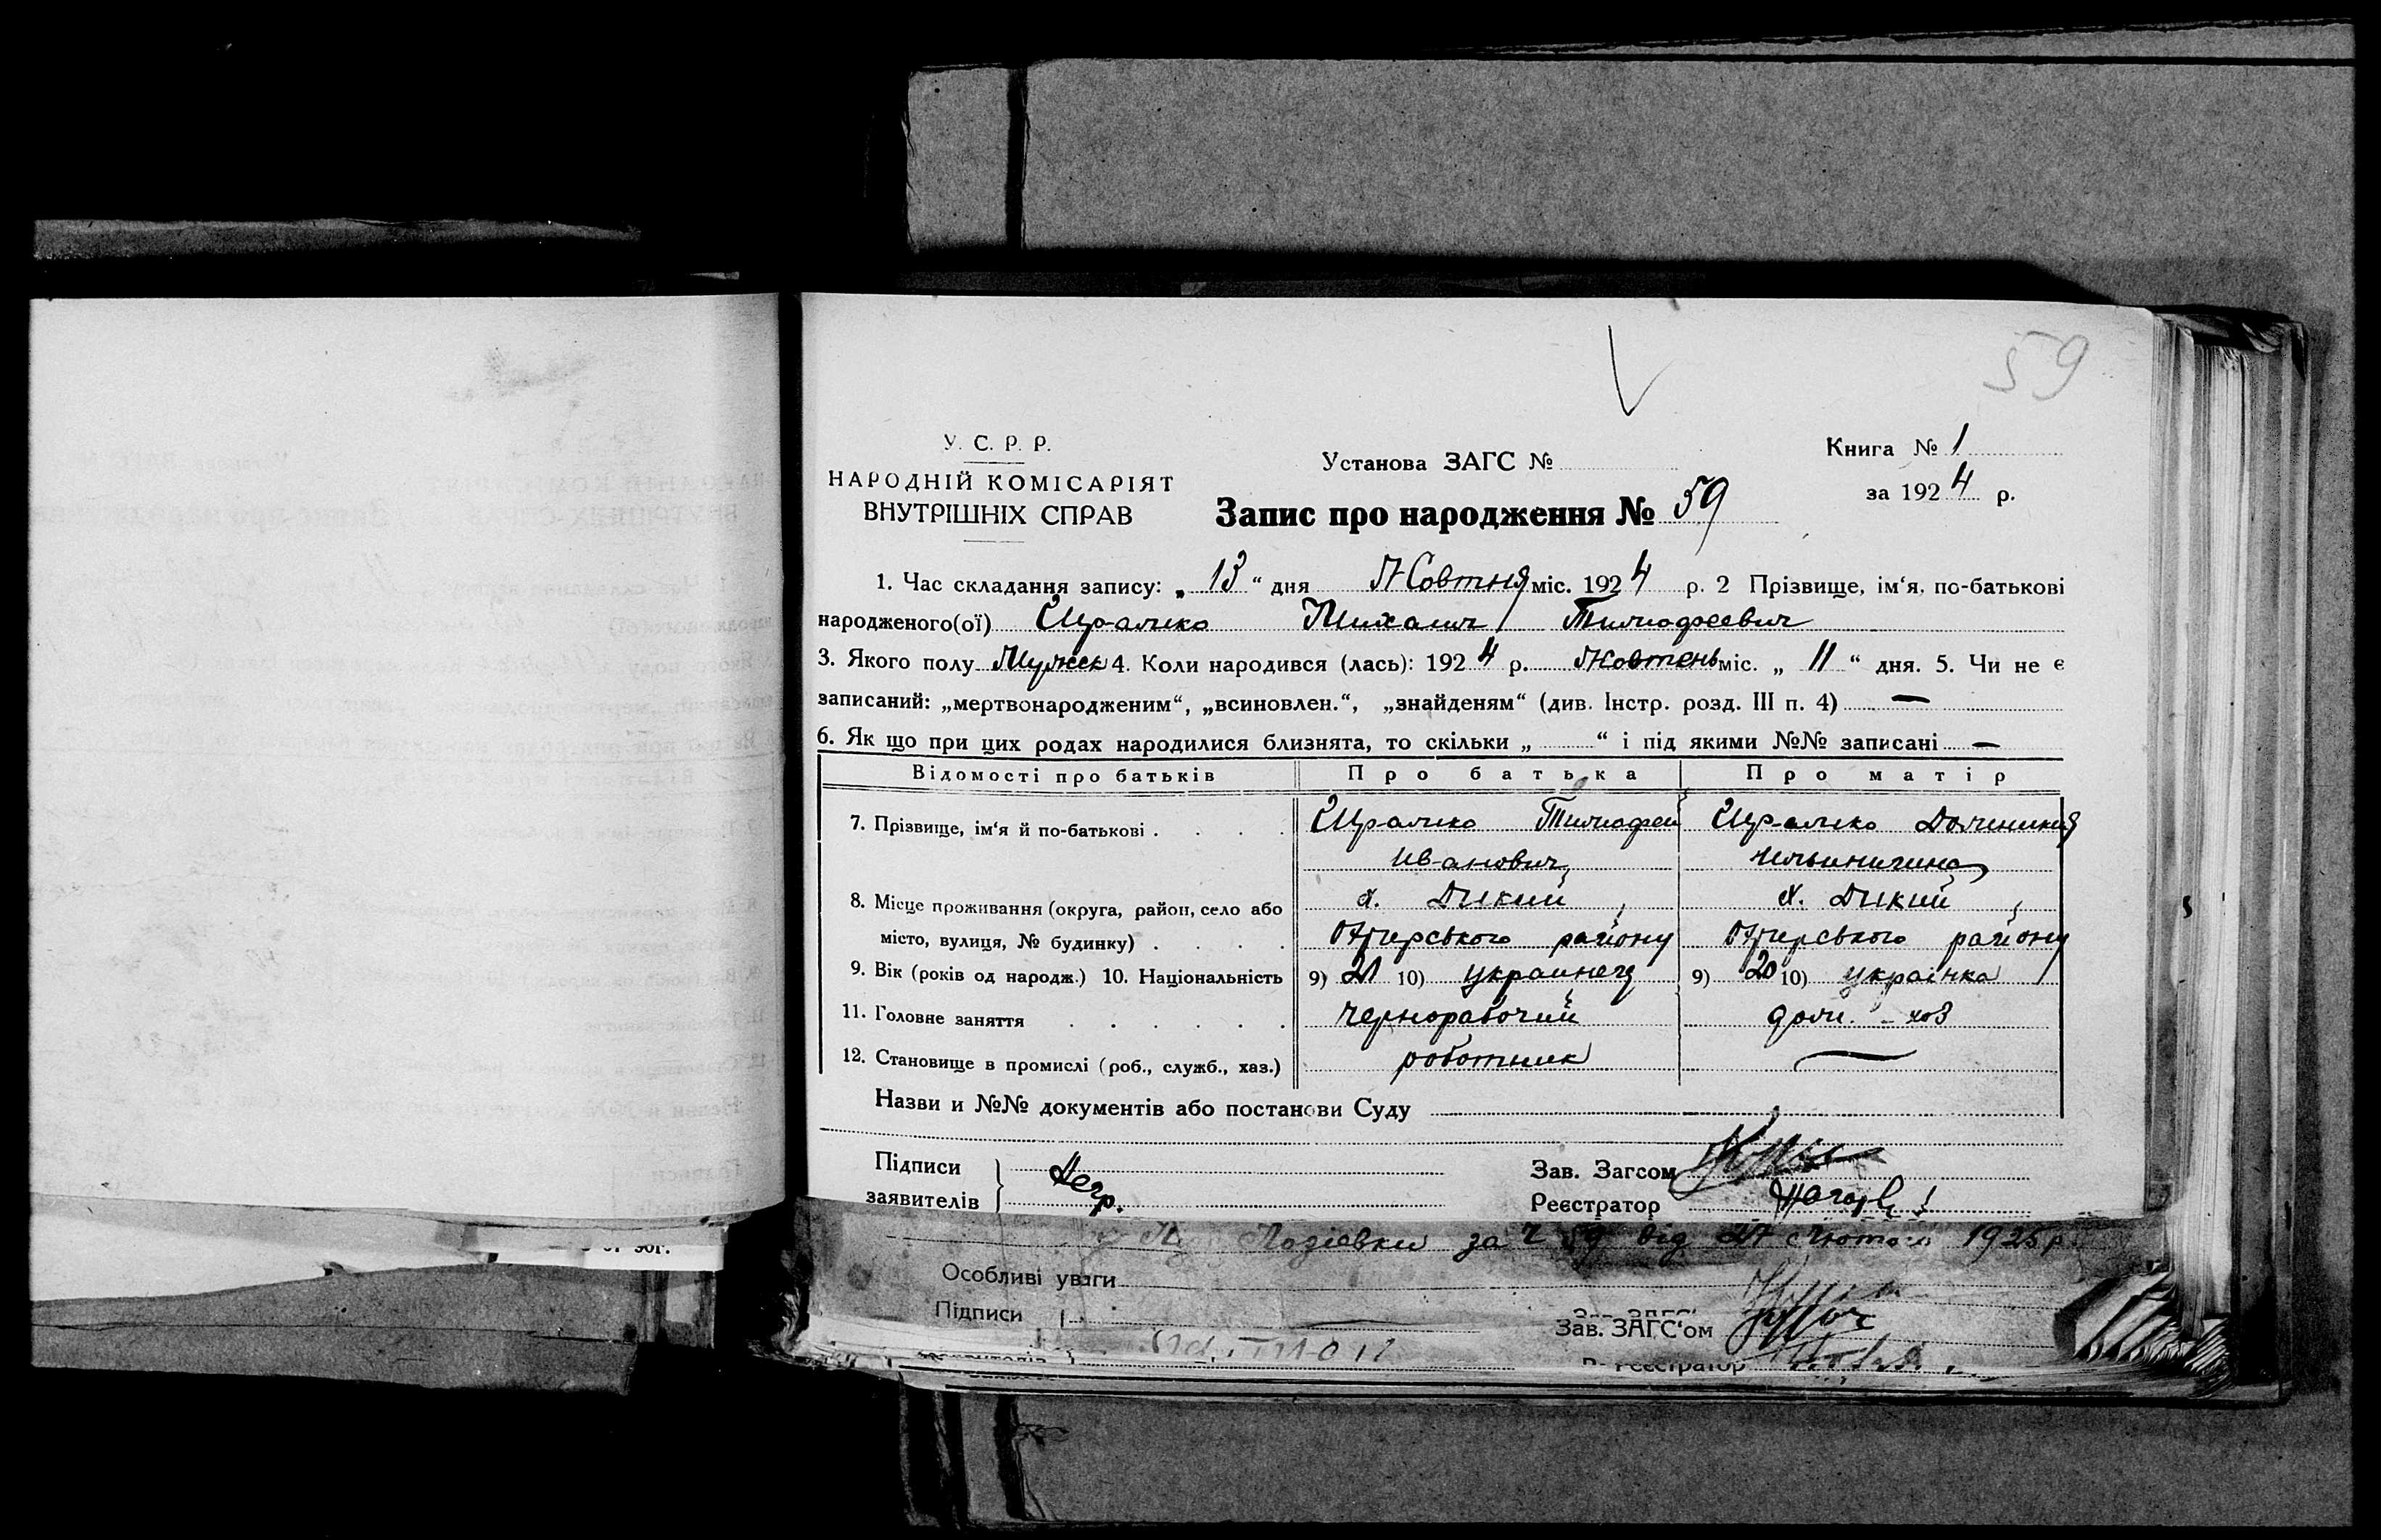 59
У. С. Р. Р.
НАРОДНІЙ КОМІСАРІЯТ
ВНУТРІШНІХ СПРАВ
Установа ЗАГС №
Запис про народження № 59
Книга № 1
за 1924 р.
1. Час складання запису: „ 13 “ дня Жовтня міс. 1924 р. 2 Прізвище, ім‘я, по-батькові
народженого(ої) Михаил Тимофеевич
3. Якого полу Мужск 4. Коли народився (лась): 1924 р. Жовтень міс. „ 11 “ дня. 5. Чи не є
записаний: „мертвонародженим“, „всиновлен.“, „знайденям“ (див. Інстр. розд. III п. 4) —
6. Як що при цих родах народилися близнята, то скільки „ “ і під якими №№ записані —
Відомості про батьків Про батька Про матір
7. Прізвище, ім‘я й по-батькові . . . .
Тимофей
Иванович
8. Місце проживання (округа, район, село або
місто, вулиця, № будинку) . . . .
х. Дикий, району
х. Дикий, району
9. Вік (років од народж.) 10. Національність 9) 21 10) украинец 9) 20 10) українка
11. Головне заняття . . . . . . чернорабочий дом. - хоз
12. Становище в промислі (роб., служб., хаз.) роботник —
Назви и №№ документів або постанови Суду
Підписи
заявителів
Негр.
Зав. Загсом
Реєстратор
за Ч 59 від 27 Лютого 1925 р.
Особливі уваги
Підписи
Зав. ЗАГС‘ом
Реєстратор